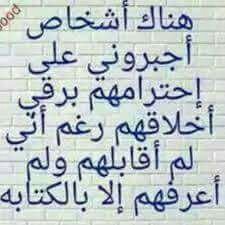 هناك أشخاص
أجبروني على
إحترامهم برقي
أخلاقهم رغم أني
لم أقابلهم ولم
أعرفهم إلا بالكتابه